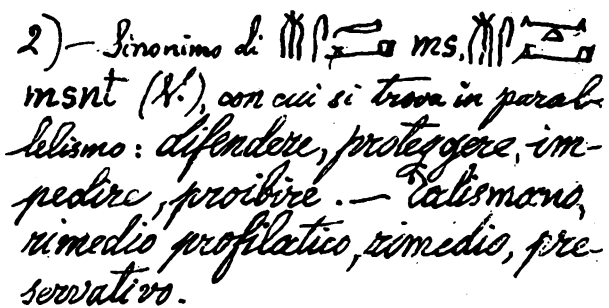 2) — Sinonimo di ms,
msnt (V.), con cui si trova in paral-
lelismo: difendere, proteggere, im-
pedire, proibire. — Talismano,
rimedio profilatico, rimedio, pre-
servativo.